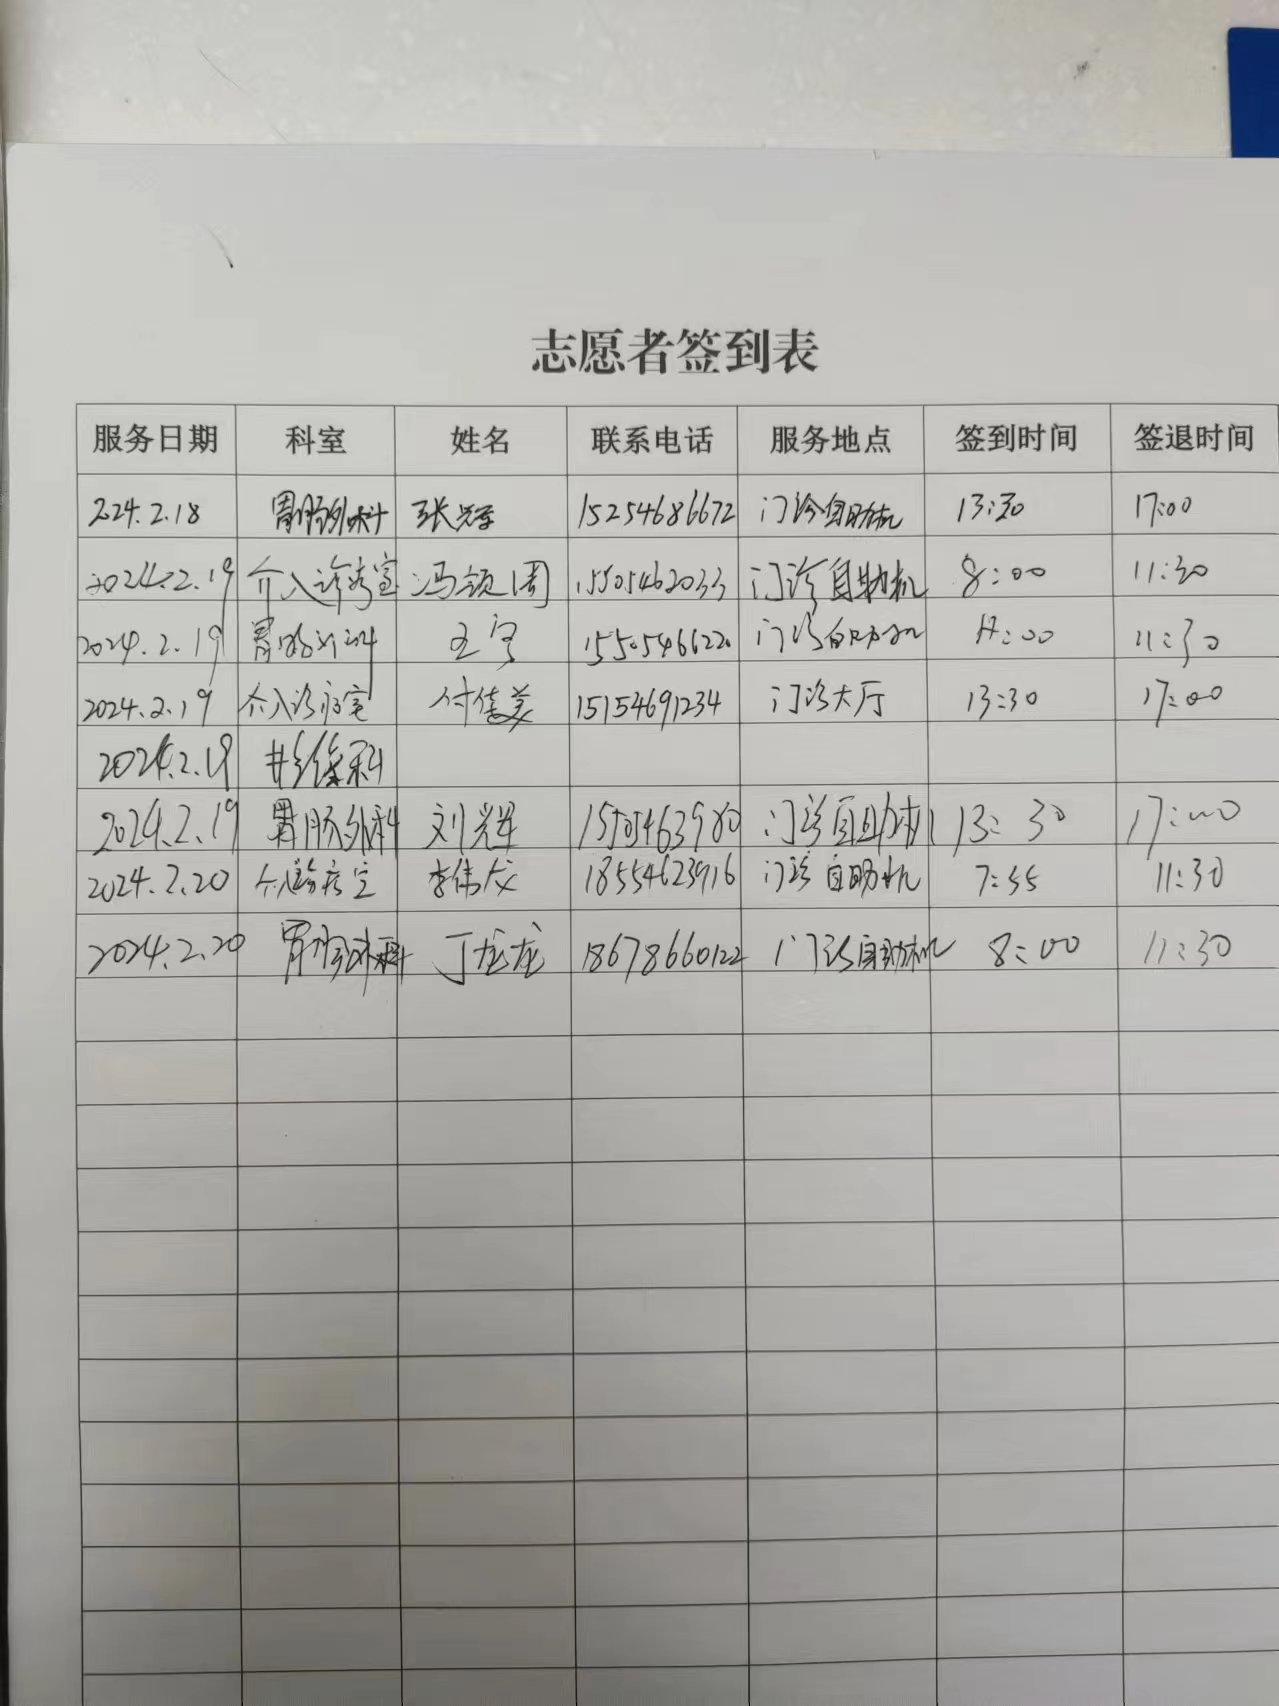 志愿者签到表
服务日期 科室 姓名 联系电话 服务地点 签到时间 签退时间
2024.2.18 胃肠外科 张辉 15254686672 门诊自助机 13:30 17:00
2024.2.19 介入诊疗室 冯领周 15505462033 门诊自助机 8:00 11:30
2024.2.19 胃肠外科 王宁 15505466220 门诊自助机 :00 11:30
2024.2.19 介入诊疗室 付佳美 15154691234 门诊大厅 13:30 17:00
2024.2.19
2024.2.19 胃肠外科 刘 门诊自助机 13:30 17:00
2024.2.20 介入诊疗室 李伟 18554623916 门诊自助机 7:55 11:30
2024.2.20 胃肠外科 丁龙龙 18678660122 门诊自助机 8:00 11:30